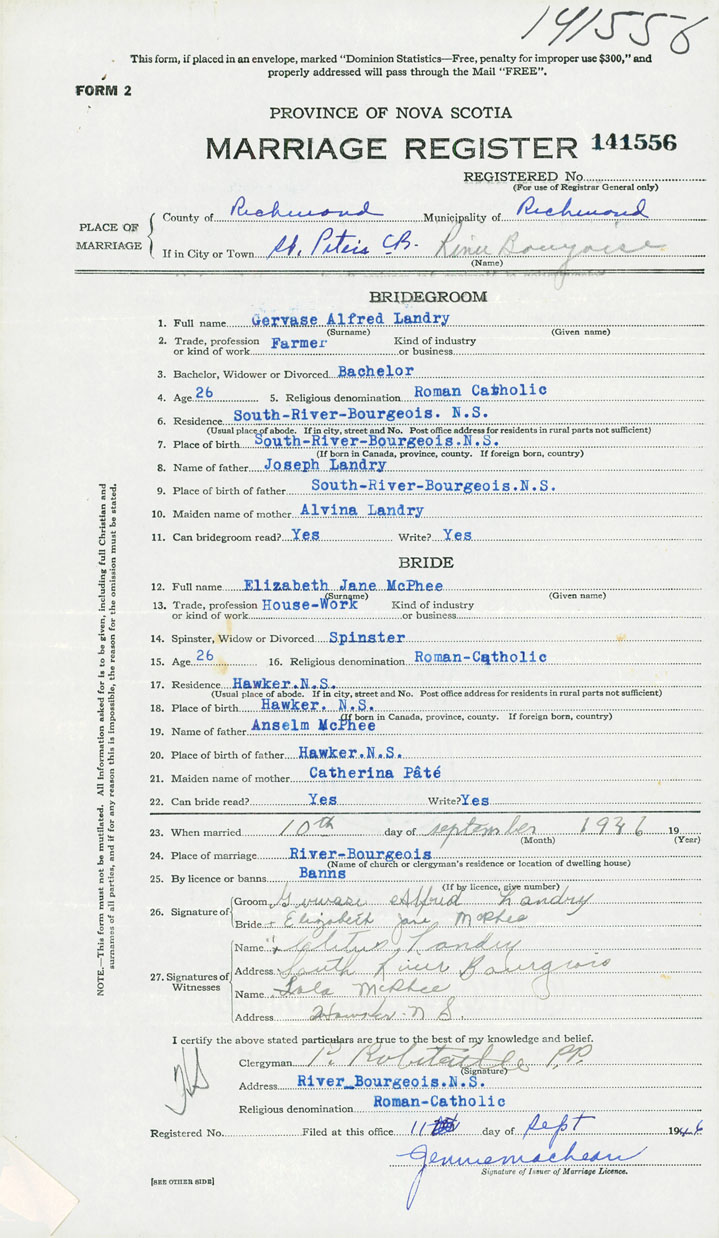 141556
This form, if placed in an envelope, marked "Dominion Statistics—Free, penalty for improper use $300," and
properly addressed will pass through the Mail "FREE".
FORM 2
PROVINCE OF NOVA SCOTIA
MARRIAGE REGISTER 141556
REGISTERED No.
(For use of Registrar General only)
PLACE OF MARRIAGE
County of Richmond Municipality of Richmond
If in City or Town St. Peters CB. River Bourgoise
(Name)
BRIDEGROOM
1. Full name Gervase Alfred Landry
(Surname) (Given name)
2. Trade, profession Farmer Kind of industry
or kind of work or business
3. Bachelor, Widower or Divorced Bachelor
4. Age 26 5. Religious denomination Roman Catholic
6. Residence South-River-Bourgeois. N.S.
(Usual place of abode. If in city, street and No. Post office address for residents in rural parts not sufficient)
7. Place of birth South-River-Bourgeois.N.S.
(If born in Canada, province, county. If foreign born, country)
8. Name of father Joseph Landry
9. Place of birth of father South-River-Bourgeois.N.S.
10. Maiden name of mother Alvina Landry
11. Can bridegroom read? Yes Write? Yes
BRIDE
12. Full name Elizabeth Jane McPhee
(Surname) (Given name)
13. Trade, profession House-Work Kind of industry
or kind of work or business
14. Spinster, Widow or Divorced Spinster
15. Age 26 16. Religious denomination Roman-Catholic
17. Residence Hawker.N.S.
(Usual place of abode. If in city, street and No. Post office address for residents in rural parts not sufficient)
18. Place of birth Hawker. N.S.
(If born in Canada, province, county. If foreign born, country)
19. Name of father Anselm McPhee
20. Place of birth of father Hawker.N.S.
21. Maiden name of mother Catherina Pâté
22. Can bride read? Yes Write? Yes
23. When married 10th day of september 1946 19
(Month) (Year)
24. Place of marriage River-Bourgeois
(Name of church or clergyman's residence or location of dwelling house)
25. By licence or banns Banns
(If by licence, give number)
26. Signature of
Groom Gervase Alfred Landry
Bride Elizabeth Jane McPhee
27. Signatures of Witnesses
Name Cletus Landry
Address South River Bourgeois
Name Lola McPhee
Address Hawker N S.
I certify the above stated particulars are true to the best of my knowledge and belief.
Clergyman P. Robitaille P.P.
(Signature)
Address River_Bourgeois.N.S.
Religious denomination Roman-Catholic
Registered No. Filed at this office 11th day of Sept 1946
Signature of Issuer of Marriage Licence.
[SEE OTHER SIDE]
NOTE.—This form must not be mutilated. All information asked for is to be given, including full Christian and
surnames of all parties, and if for any reason this is impossible, the reason for the omission must be stated.